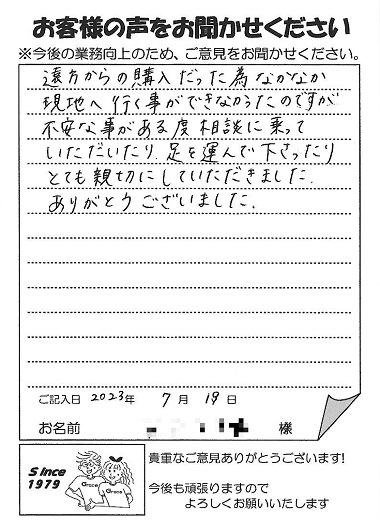 お客様の声をお聞かせください
※今後の業務向上のため、ご意見をお聞かせください。
遠方からの購入だった為なかなか
現地へ行く事ができなかったのですが
不安な事がある度相談に乗って
いただいたり、足を運んで下さったり
とても親切にしていただきました。
ありがとうございました。
ご記入日 2023年 7月 19日
お名前 様
Since
1979
Grace
Grace
貴重なご意見ありがとうございます!
今後も頑張りますので
よろしくお願いいたします